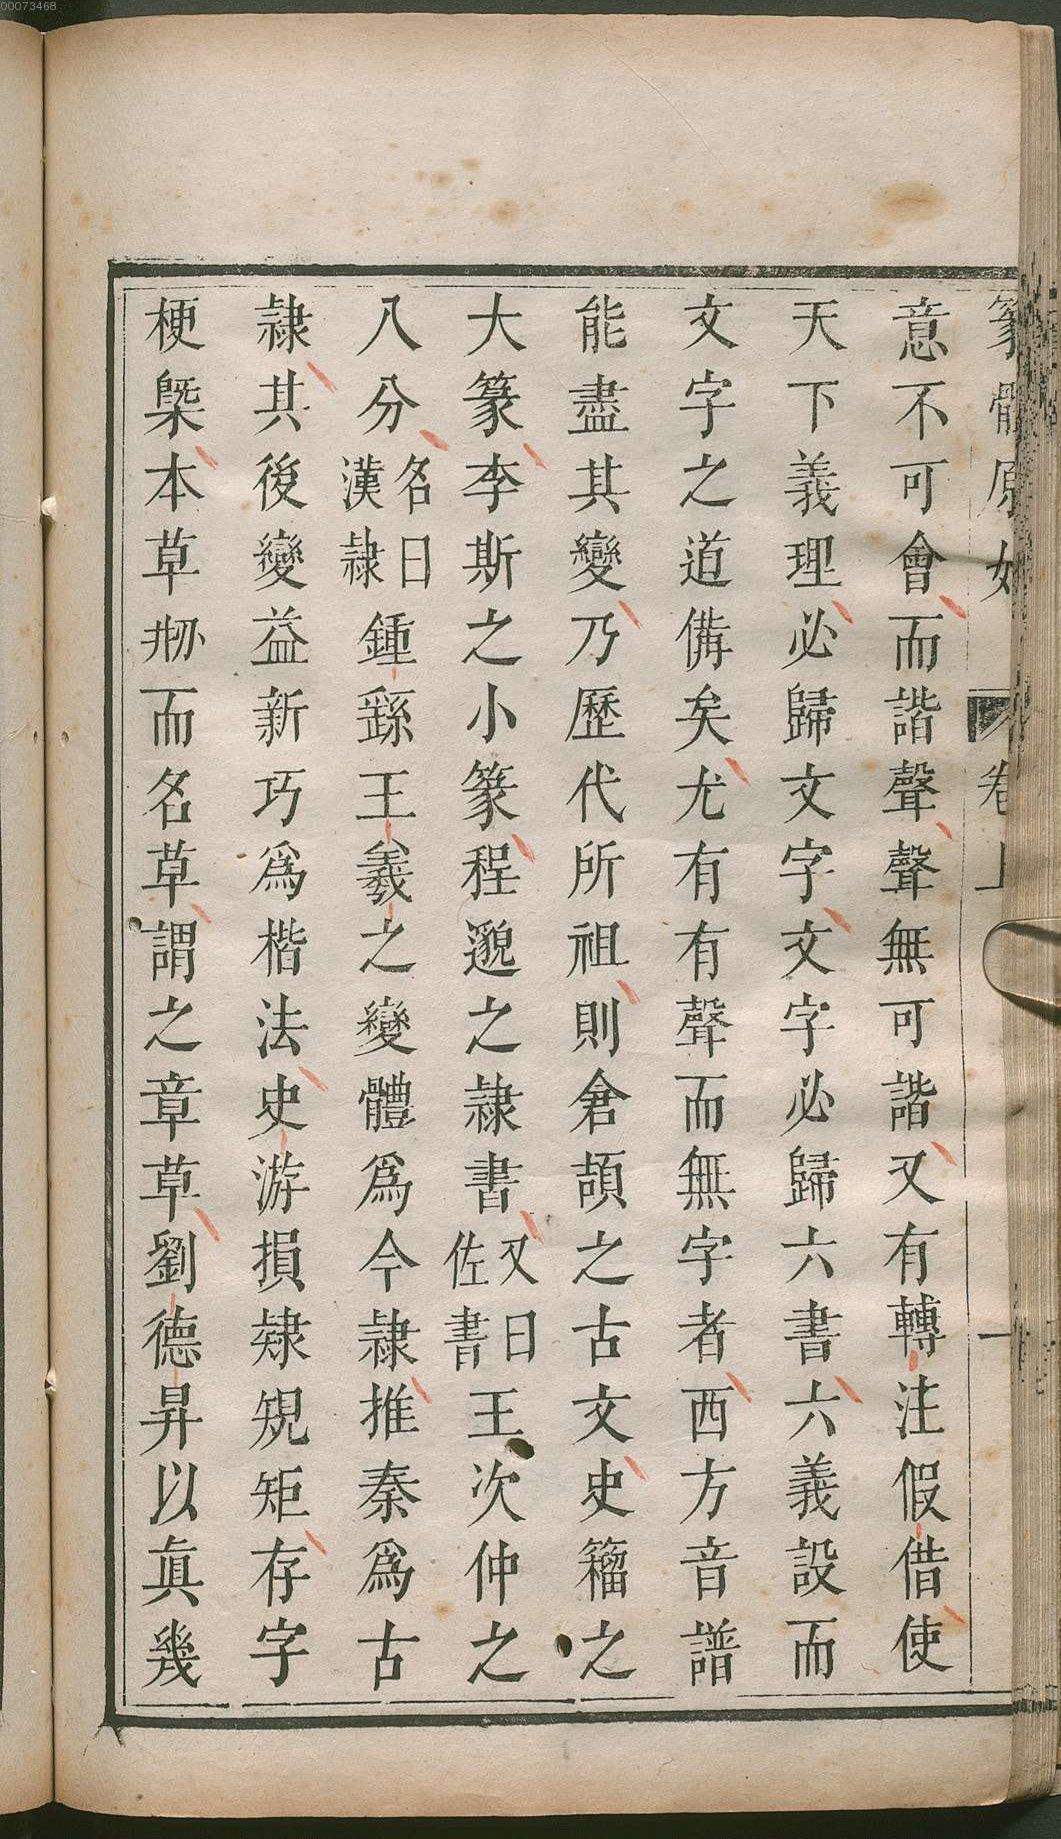 00073468
篆體原始 卷上 一
意不可會而諧聲聲無可諧又有轉注假借使
天下義理必歸文字文字必歸六書六義設而
文字之道備矣尤有有聲而無字者西方音譜
能盡其變乃歷代所祖則倉頡之古文史籀之
大篆李斯之小篆程邈之隸書又曰佐書王次仲之
八分名曰漢隸鍾繇王羲之變體爲今隸推秦爲古
隸其後變益新巧爲楷法史游損隸規矩存字
梗槩本草刱而名草謂之章草劉德昇以眞幾